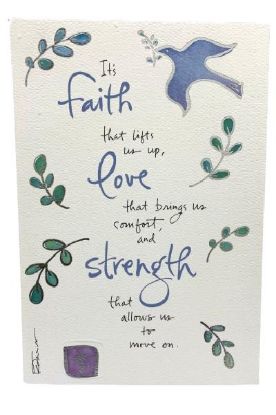 It's
faith
that lifts
us up,
love
that brings us
comfort,
and
strength
that
allows us
to
move on.